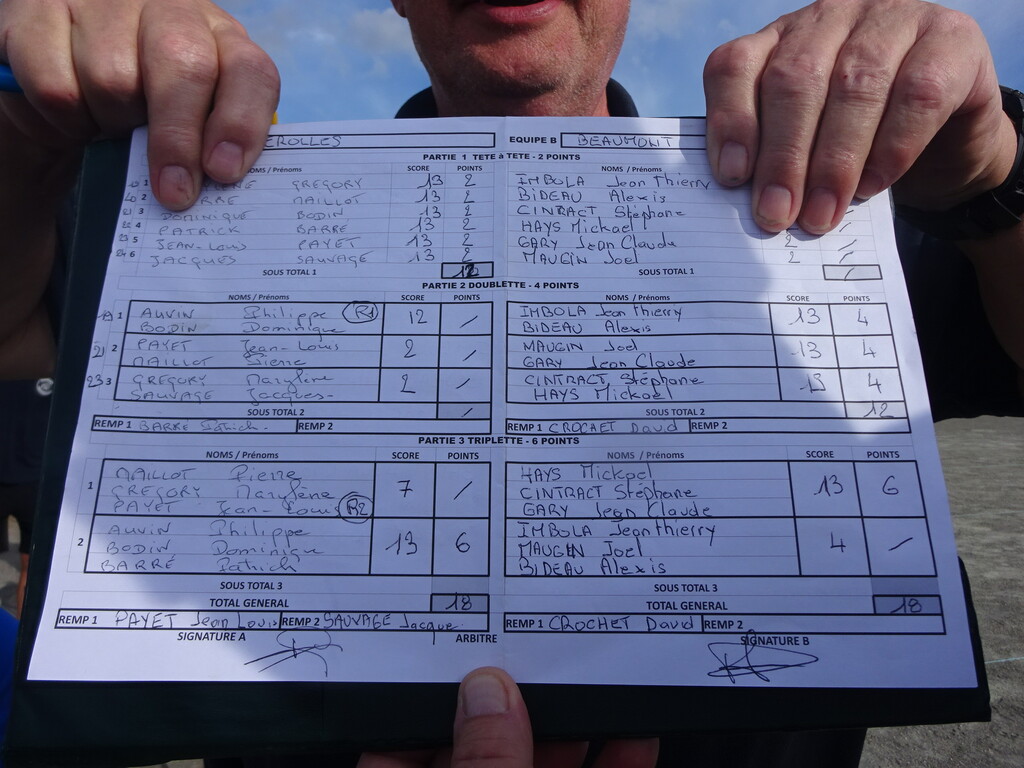 EROLLES EQUIPE B BEAUMONT
PARTIE 1 TETE à TETE - 2 POINTS
SCORE POINTS NOMS / Prénoms
1 GREGORY 13 2 IMBOLA Jean Thierry
2 MAILLOT 13 2 BIDEAU Alexis
3 DOMINIQUE BODIN 13 2 CINTRACT Stéphane
4 PATRICK BARRE 13 2 HAYS Mickael
5 JEAN-Louis PAYET 13 2 GARY Jean Claude 2 /
6 JACQUES SAUVAGE 13 2 MAUGIN Joel 2 /
SOUS TOTAL 1 12 SOUS TOTAL 1 /
PARTIE 2 DOUBLETTE - 4 POINTS
NOMS / Prénoms SCORE POINTS NOMS / Prénoms SCORE POINTS
1 AUVIN Philippe R1 12 / IMBOLA Jean Thierry 13 4
BODIN Dominique BIDEAU Alexis
21 2 PAYET Jean-Louis 2 / MAUGIN Joel 13 4
MAILLOT Pierre GARY Jean Claude
23 3 GREGORY Marylène 2 / CINTRACT Stéphane 13 4
SAUVAGE Jacques- HAYS Mickael
SOUS TOTAL 2 / SOUS TOTAL 2 12
REMP 1 BARRÉ Patrick. REMP 2 REMP 1 CROCHET David REMP 2
PARTIE 3 TRIPLETTE - 6 POINTS
NOMS / Prénoms SCORE POINTS NOMS / Prénoms SCORE POINTS
1 MAILLOT Pierre 7 / HAYS Mickael 13 6
GREGORY Marylène CINTRACT Stéphane
PAYET Jean-Louis R2 GARY Jean Claude
2 AUVIN Philippe 13 6 IMBOLA Jean thierry 4 /
BODIN Dominique MAUGIN Joel
BARRÉ Patrick BIDEAU Alexis
SOUS TOTAL 3 SOUS TOTAL 3
TOTAL GENERAL 18 TOTAL GENERAL 18
REMP 1 PAYET Jean Louis REMP 2 SAUVAGE Jacque REMP 1 CROCHET David REMP 2
SIGNATURE A ARBITRE SIGNATURE B